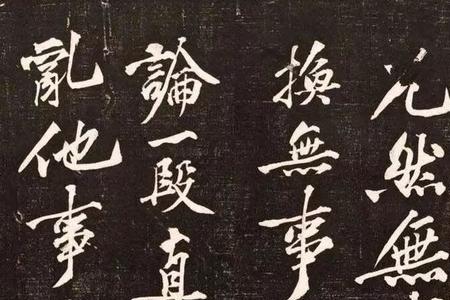 兀然無
換無事
論一段直
亂他事